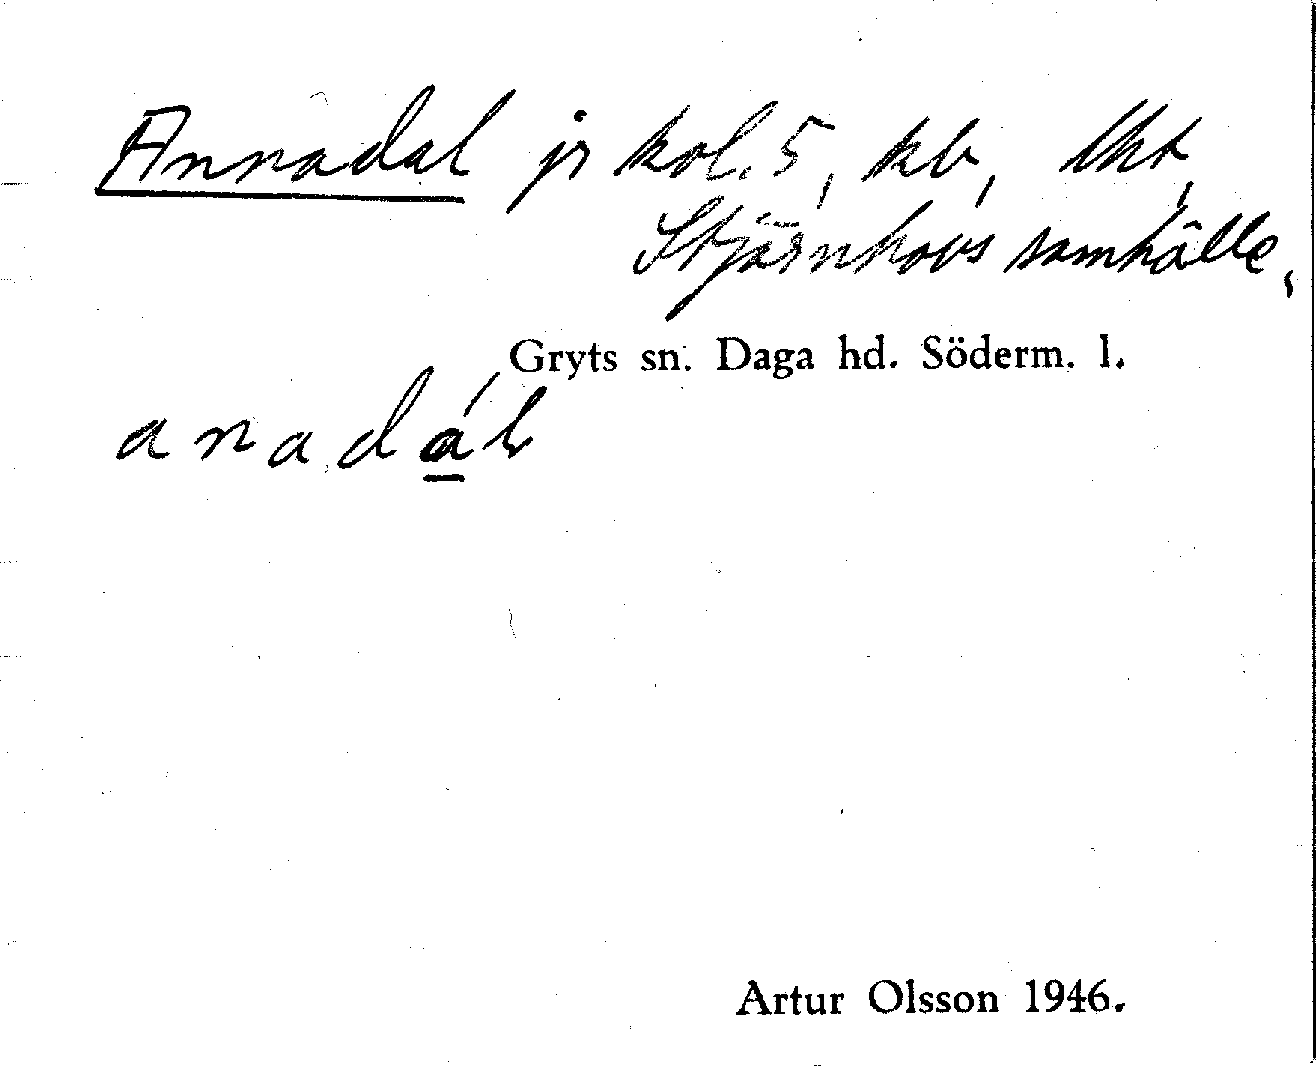 Annadal jr kol. 5, kb, lht,
Stjärnhovs samhälle,
Gryts sn. Daga hd. Söderm. l.
anadál
Artur Olsson 1946.